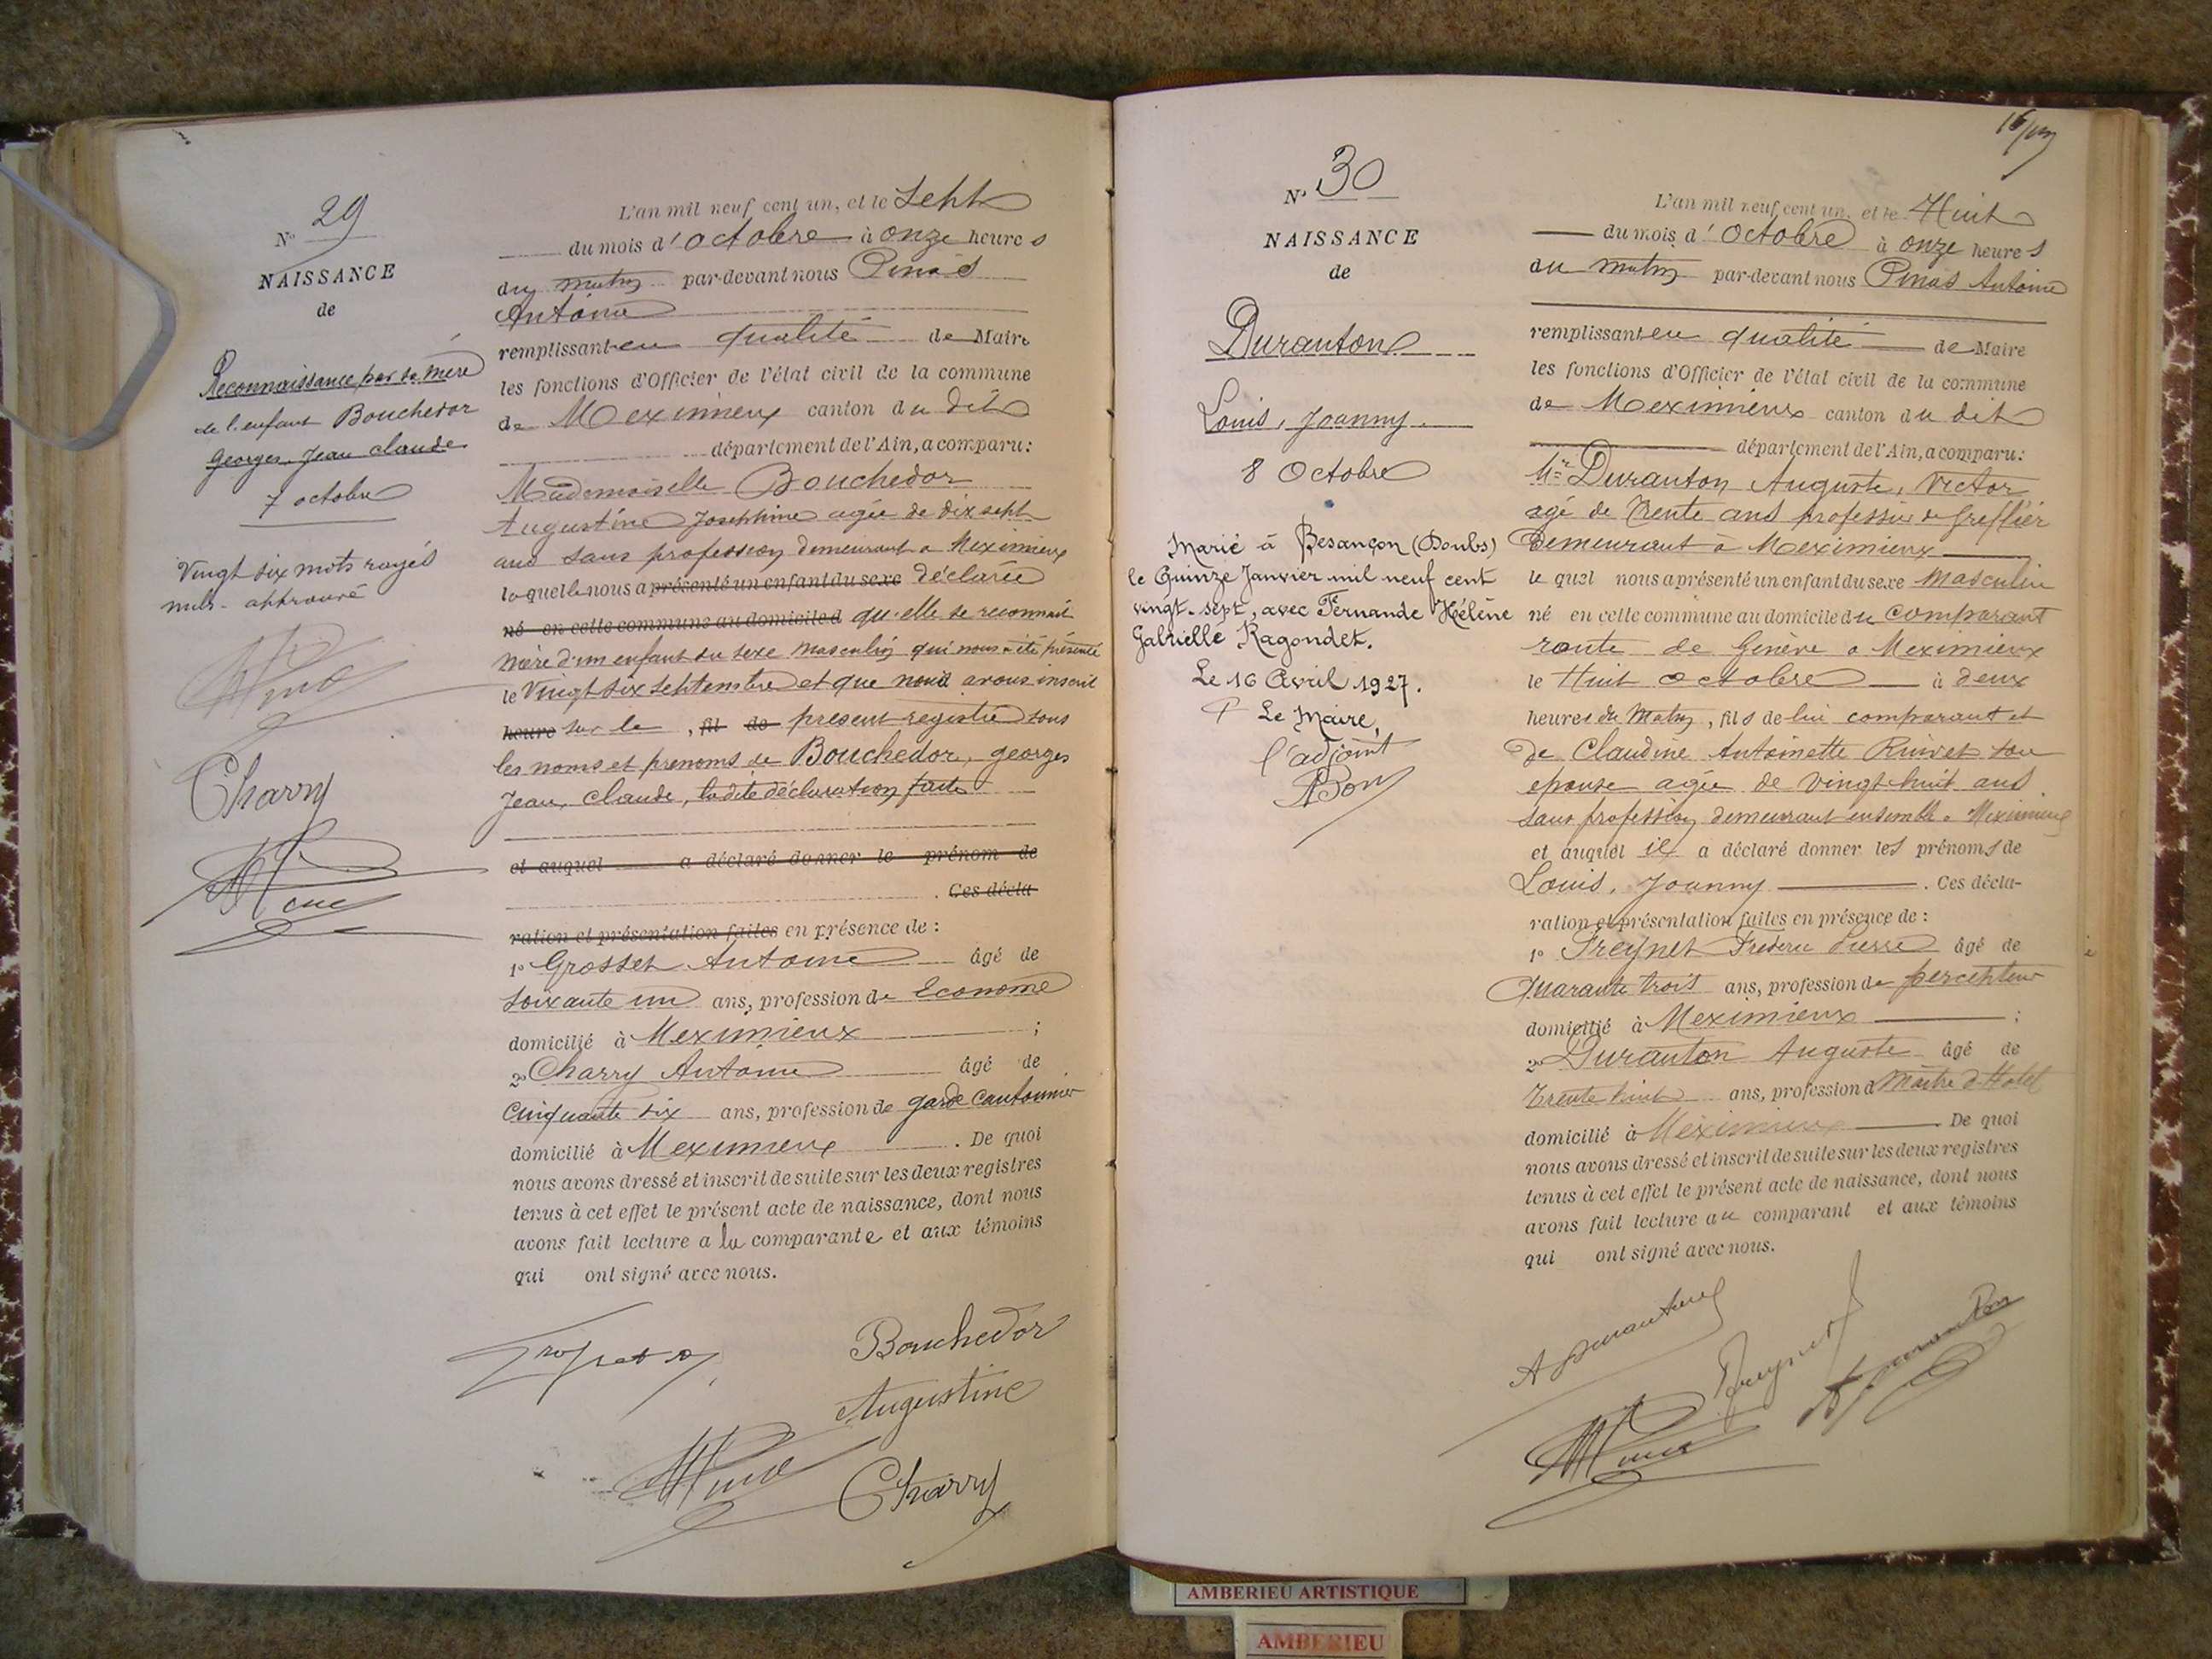 N° 29
NAISSANCE
de
Reconnaissance par sa mère
de l'enfant Bouchedor
Georges, Jean Claude
7 octobre
Vingt six mots rayés
nuls - approuvé
Charry
L'an mil neuf cent un, et le Sept
du mois d'octobre à onze heures
du matin par-devant nous Pinas
Antoine
remplissant en qualité de Maire
les fonctions d'Officier de l'état civil de la commune
de Meximieux canton du dit
département de l'Ain, a comparu:
Mademoiselle Bouchedor
Augustine Josephine agée de dix sept
ans sans profession demeurant a Meximieux
laquelle nous a présenté un enfant du sexe déclarée
né en cette commune au domicile d qu'elle se reconnait
mère d'un enfant du sexe masculin qui nous a été présenté
le Vingt six septembre et que nous avons inscrit
heure sur le , fil de présent registre sous
les noms et prenoms de Bouchedor, georges
Jean, Claude, ladite déclaration faite
et auquel a déclaré donner le prénom de
. Ces décla-
ration et présentation faites en présence de :
1° Grosset Antoine âgé de
soixante un ans, profession de Econome
domicilié à Meximieux ;
2° Charry Antoine âgé de
Cinquante six ans, profession de garde Cantonnier
domicilié à Meximieux . De quoi
nous avons dressé et inscrit de suite sur les deux registres
tenus à cet effet le présent acte de naissance, dont nous
avons fait lecture a la comparante et aux témoins
qui ont signé avec nous.
Bouchedor
Augustine
Charry
N° 30
NAISSANCE
de
Duranton
Louis, Joanny.
8 Octobre
Marié à Besançon (Doubs)
le Quinze Janvier mil neuf cent
vingt-sept, avec Fernande Hélène
Gabrielle Ragondet.
Le 16 Avril 1927.
P Le Maire,
l'adjoint
Bon
L'an mil neuf cent un, et le Huit
du mois d'Octobre à onze heures
du matin par-devant nous Pinas Antoine
remplissant en qualité de Maire
les fonctions d'Officier de l'état civil de la commune
de Meximieux canton du dit
département de l'Ain, a comparu:
Mr Duranton Auguste, Victor
agé de Trente ans profession de Greffier
Demeurant à Meximieux
le quel nous a présenté un enfant du sexe Masculin
né en cette commune au domicile du comparant
route de Genève a Meximieux
le Huit octobre à deux
heures du Matin, fils de lui comparant et
de Claudine Antoinette son
epouse agée de vingt huit ans
sans profession demeurant ensemble a Meximieux
et auquel il a déclaré donner les prénoms de
Louis, Joanny . Ces décla-
ration et présentation faites en présence de :
1° Freynet Frederic Pierre âgé de
Quarante trois ans, profession de percepteur
domicilié à Meximieux ;
2° Duranton Auguste âgé de
Trente huit ans, profession d Maître d'Hotel
domicilié à Meximieux . De quoi
nous avons dressé et inscrit de suite sur les deux registres
tenus à cet effet le présent acte de naissance, dont nous
avons fait lecture au comparant et aux témoins
qui ont signé avec nous.
A Duranton
Freynet
AMBERIEU ARTISTIQUE
AMBERIEU